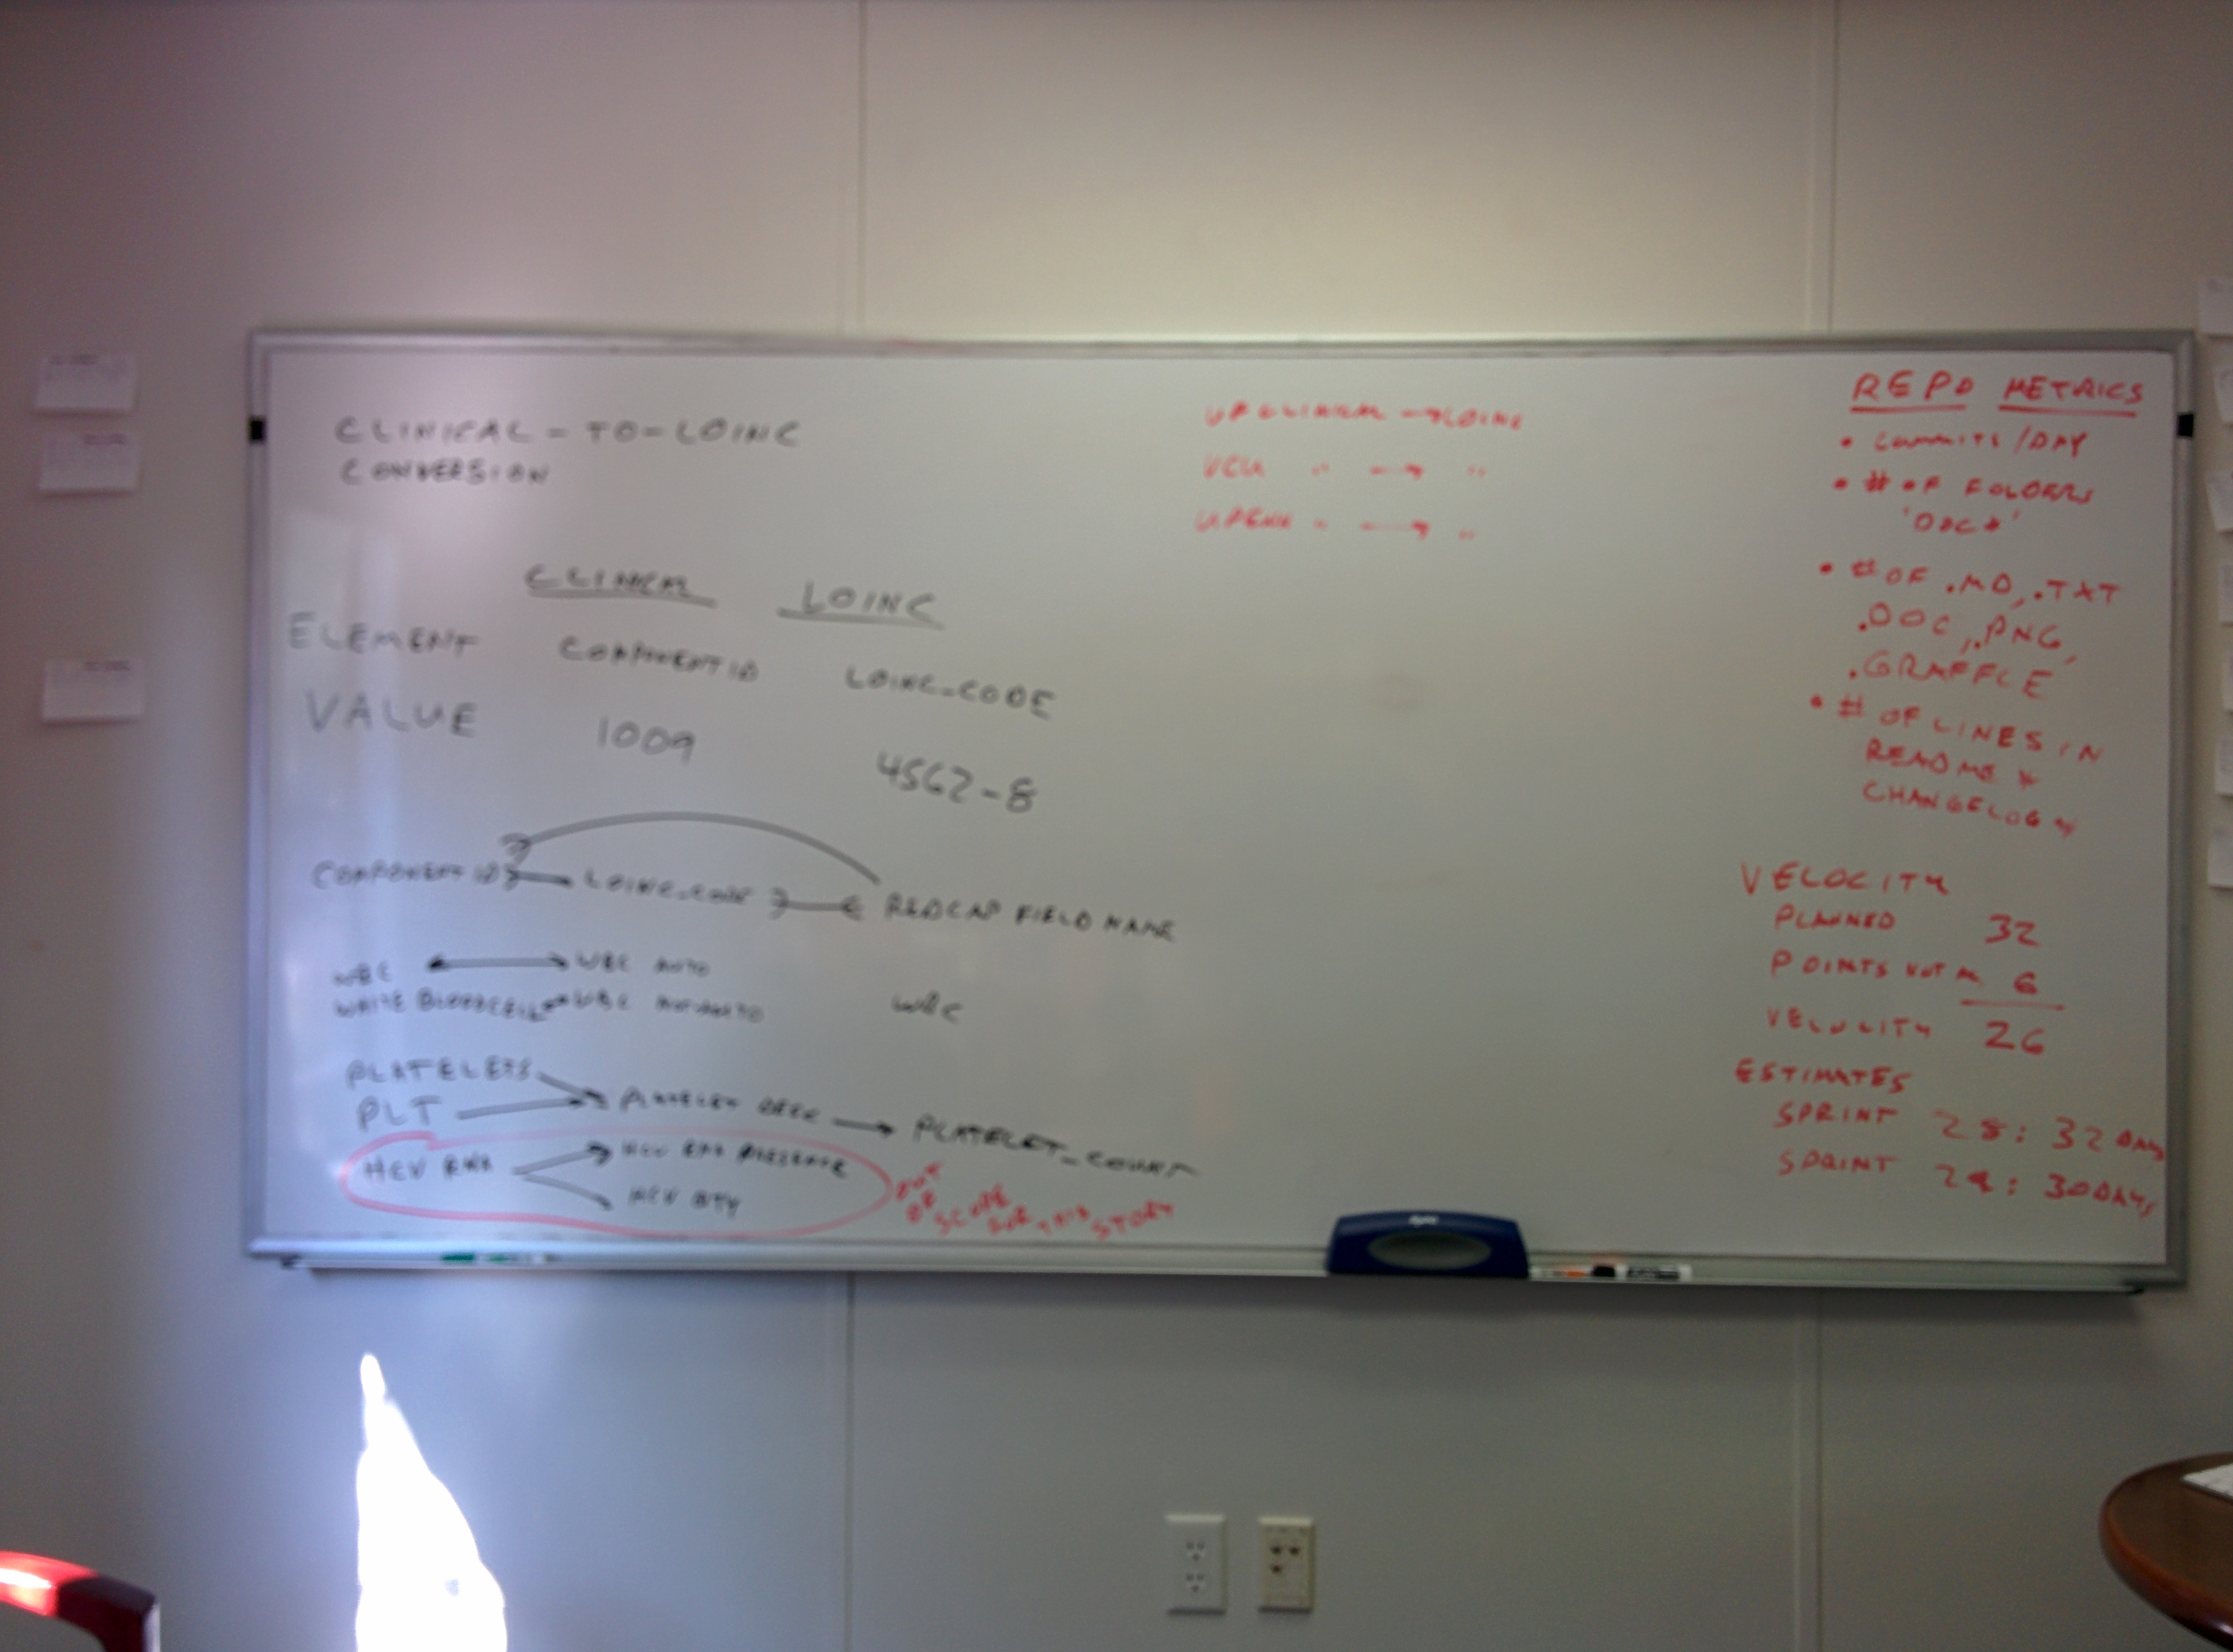 CLINICAL-TO-LOINC
CONVERSION
CLINICAL LOINC
ELEMENT COMPONENT ID LOINC_CODE
VALUE 1009 4562-8
COMPONENT ID LOINC_CODE REDCAP FIELD NAME
WBC WBC AUTO
WHITE BLOODCELL WBC WBC
PLATELETS
PLT PLATELET PLATELET_COUNT
HCV RNA HCV RNA PRESENCE
HCV QTY
OUT
OF
SCOPE
FOR
THIS
STORY
UF CLINICAL → LOINC
VCU " → "
UPENN " → "
REPO METRICS
• COMMITS/DAY
• # OF FOLDERS
'DOC*'
• # OF .MD, .TXT
.DOC, .PNG,
.GRAFFLE
• # OF LINES IN
README *
CHANGELOG *
VELOCITY
PLANNED 32
POINTS NOT 6
VELOCITY 26
ESTIMATES
SPRINT 28: 32 DAYS
SPRINT 29: 30 DAYS